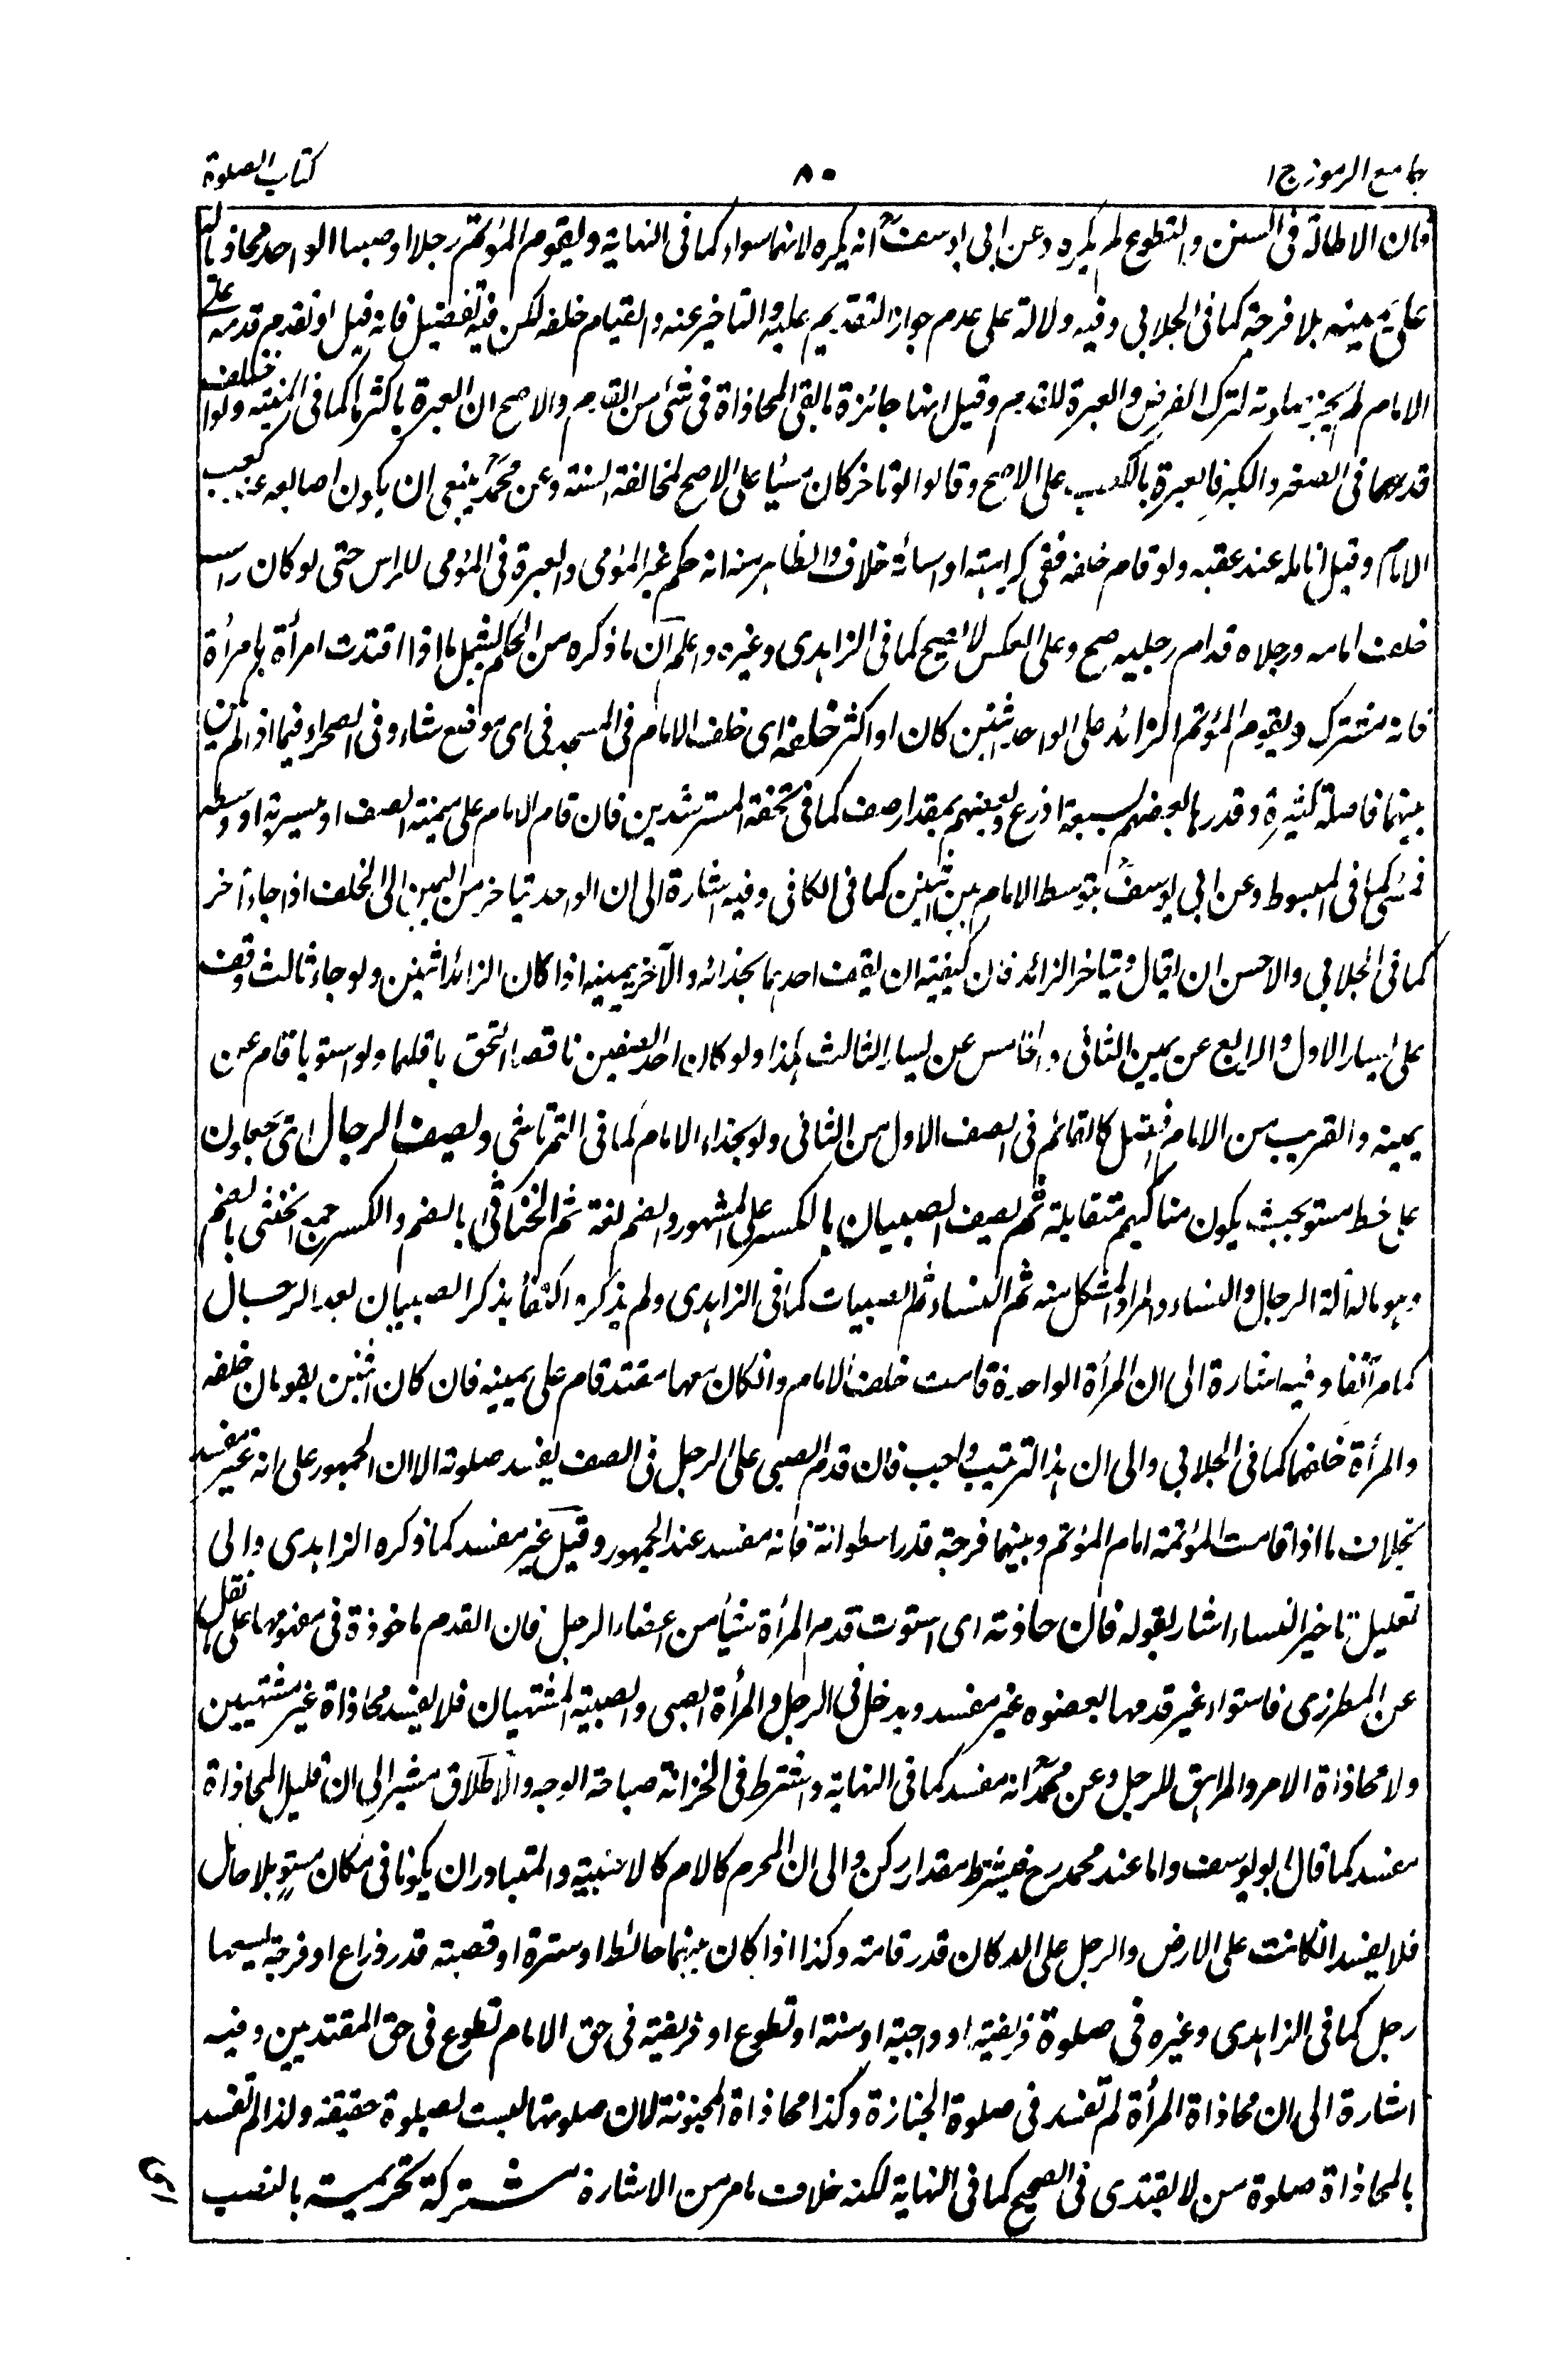 جامع الرموز ج ا
٨٠
كتاب الصلوة
فان الاطالة فى السنن والتطوع لم يكره وعن ابى يوسفؒ انه يكره لانهما سواء كما فى النهاية ويقوم المؤتم رجلا او صبيا الواحد محاذيا له
على يمينه بلا فرجة كما فى الجلابى وفيه دلالة على عدم جواز التقديم عليه والتاخير عنه والقيام خلفه لكن فيه تفضيل فانه قيل لو تقدم قدمه على
الامام لم يجز صلوته لترك الفرض والعبرة للقدم وقيل انها جائزة ما بقى المحاذاة فى شئ من القدم والاصح ان العبرة باكثرها كما فى المنية ولو اختلف
قدمهما فى الصغر والكبر فالعبرة بالكعب على الاصح وقالوا لو تاخر كان مسيئا على الاصح لمخالفة السنة وعن محمدؒ ينبغى ان يكون اصابعه عند كعب
الامام وقيل انامله عند عقبه ولو قام خلفه ففى كراهته او اسائة خلاف والظاهر منه انه حكم غير المؤمى والعبرة فى المؤمى للراس حتى لو كان راسه
خلف امامه ورجلاه قدام رجليه صح وعلى العكس لا يصح كما فى الزاهدى وغيره واعلم ان ما ذكره من الحكم يشمل ما اذا اقتدت امرأة بامرأة
فانه مشترك ويقوم المؤتم الزائد على الواحد اثنين كان او اكثر خلفه اى خلف الامام فى المسجد فى اى موضع شاء وفى الصحراء فيما اذا لم يكن
بينهما فاصلة كثيرة وقدرها بعضهم بسبعة اذرع وبعضهم بمقدار صف كما فى تحفة المسترشدين فان قام الامام على ميمنة الصف او ميسرته او وسطه
فمسئ كما فى المبسوط وعن ابى يوسفؒ يتوسط الامام بين اثنين كما فى الكافى وفيه اشارة الى ان الواحد يتاخر من اليمين الى الخلف اذا جاء آخر
كما فى الجلابى والاحسن ان يقال ويتاخر الزائد فان كيفيته ان يقف احدهما بحذائه والآخر بيمينه اذا كان الزائد اثنين ولو جاء ثالث وقف
على يسار الاول والرابع عن يمين الثانى والخامس عن يسار الثالث هكذا ولو كان احد الصفين ناقصا التحق باقلهما ولو استويا قام عن
يمينه والقريب من الامام افضل كالقائم فى الصف الاول من الثانى ولو بحذاء الامام كما فى التمرتاشى ويصف الرجال اى يجعلون
على خط مستو بحيث يكون مناكبهم متقابلة ثم يصف الصبيان بالكسر على المشهور والضم لغة ثم الخناثى بالضم والكسر جمع الخنثى بالضم
وهو ما له آلة الرجال والنساء والمراد المشكل منه ثم النساء ثم الصبيات كما فى الزاهدى ولم يذكره اكتفاء بذكر الصبيان بعد الرجال
كما مر آنفا وفيه اشارة الى ان المرأة الواحدة قامت خلف الامام وان كان معها مقتد قام على يمينه فان كان اثنين يقومان خلفه
والمرأة خلفهما كما فى الجلابى والى ان هذا الترتيب واجب فان قدم الصبى على الرجل فى الصف يفسد صلوته الا ان الجمهور على انه غير مفسد
بخلاف ما اذا قامت المؤتمة امام المؤتم وبينهما فرجة قدر اسطوانة فانه مفسد عند الجمهور وقيل غير مفسد كما ذكره الزاهدى والى
تعليل تاخير النساء اشار بقوله فان حاذته اى استوت قدم المرأة شيئا من اعضاء الرجل فان القدم ماخوذة فى مفهومها على ما نقل
عن المطرزى فاستواء غير قدمها بعضوه غير مفسد ويدخل فى الرجل والمرأة الصبى والصبية المشتهيان فلا يفسد محاذاة غير مشتهيين
ولا محاذاة الامرد المراهق للرجل وعن محمدؒ انه مفسد كما فى النهاية واشترط فى الخزانة صباحة الوجه والاطلاق مشير الى ان قليل المحاذاة
مفسد كما قال ابو يوسف واما عند محمد رح فيشترط مقدار ركن والى ان المحرم كالام كالاجنبية والمتبادر ان يكونا فى مكان مستو بلا حائل
فلا يفسد ان كانت على الارض والرجل على الدكان قدر قامته وكذا اذا كان بينهما حائط او سترة او قصبته قدر ذراع او فرجة يسعها
رجل كما فى الزاهدى وغيره فى صلوة فريضة او واجبة او سنة او تطوع او فريضة فى حق الامام تطوع فى حق المقتديين وفيه
اشارة الى ان محاذاة المرأة لم تفسد فى صلوة الجنازة وكذا محاذاة المجنونة لان صلوتها ليست بصلوة حقيقة ولذا لم تفسد
بالمحاذاة صلوة من لا يقتدى فى الصحيح كما فى النهاية لكنه خلاف ما مر من الاشارة مشتركة تحريمة بالنصب